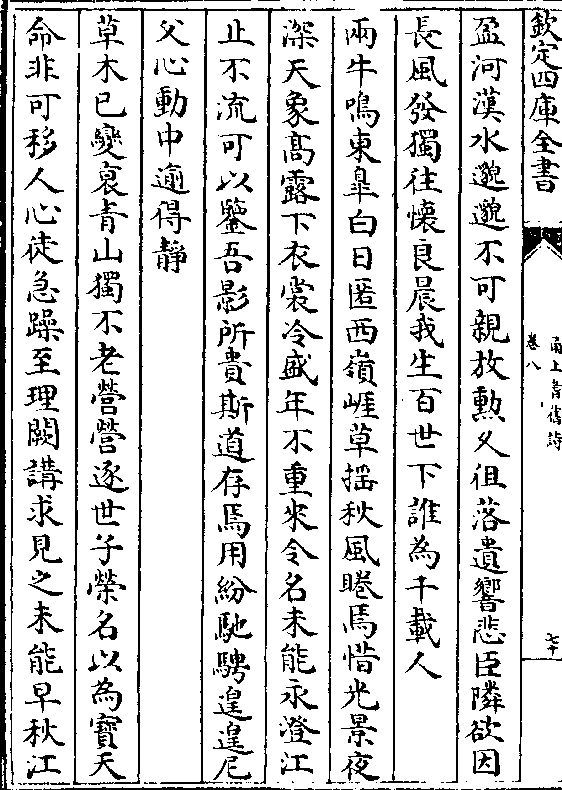 欽定四庫全書
甬上耆舊詩
卷八
七十
盈河漢水邈邈不可親放勲久徂落遺響悲臣隣欲因
長風發獨往懷良晨我生百世下誰為千載人
兩牛鳴東臯白日匿西嶺崕草摇秋風睠焉惜光景夜
深天象髙露下衣裳冷盛年不重來令名未能永澄江
止不流可以鑒吾影所貴斯道存焉用紛馳騁遑遑尼
父心動中逾得靜
草木已變衰青山獨不老營營逐世子榮名以為寶天
命非可移人心徒急躁至理闕講求見之未能早秋江